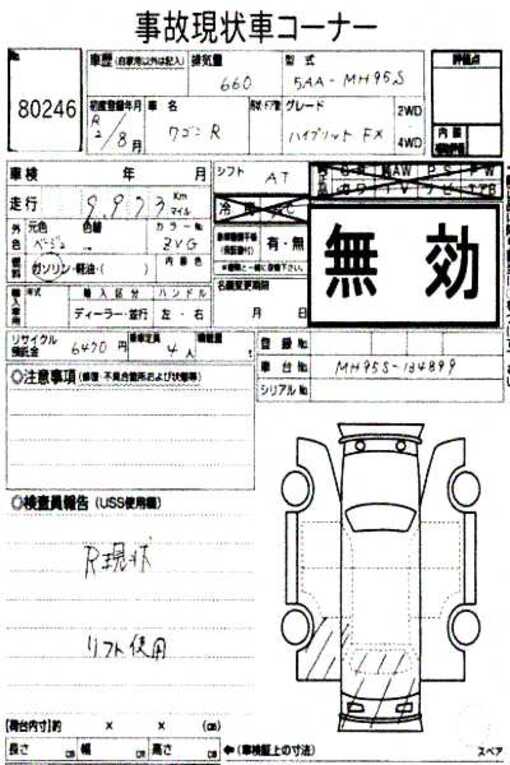 事故現状車コーナー
No.
80246
車歴 (自家用以外は記入)
排気量
660
型式
5AA-MH95S
評価点
初度登録年月
R2/8月
車名
ワゴンR
グレード
ハイブリッド FX
2WD
4WD
内装
車検 年 月
シフト
AT
走行
9,973 Km
マイル
外色
元色
ベージュ
色替
カラーNo.
ZVG
内装色
燃料
ガソリン・軽油・( )
有・無
名義変更期限
月 日
無効
輸入車用
年式
輸入区分
ディーラー・並行
ハンドル
左・右
リサイクル預託金
6470円
乗車定員
4人
積載量
t
登録No.
車台No.
MH95S-134899
シリアルNo.
◎注意事項 (修復・不具合箇所および状態等)
◎検査員報告 (USS使用欄)
R現状
リフト使用
[荷台内寸]約 × × (cm)
長さ cm 幅 cm 高さ cm
←(車検証上の寸法)
スペア